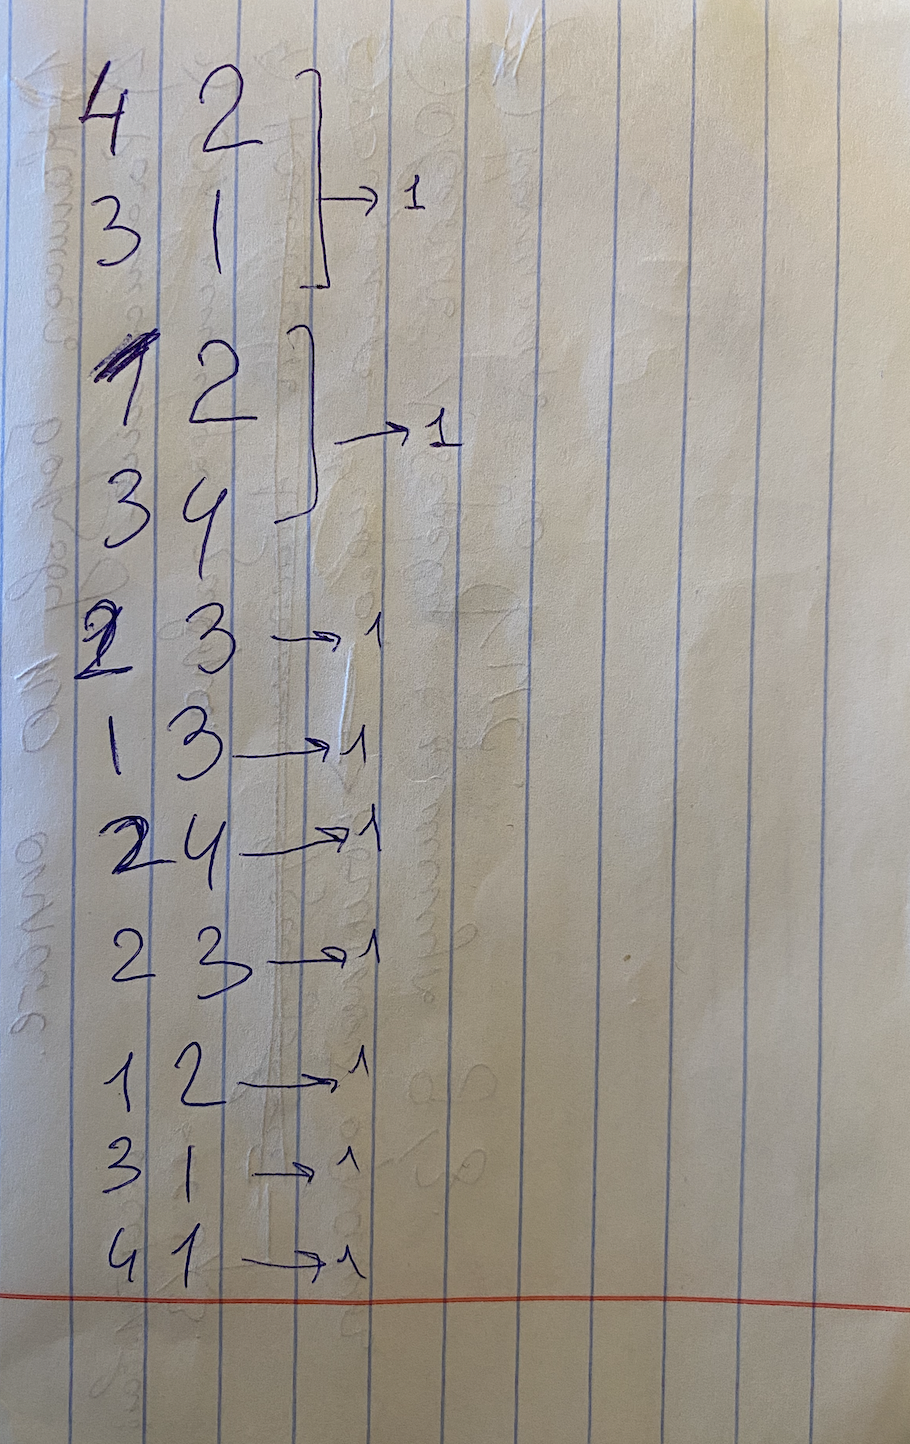 4 2
3 1
→ 1
1 2
3 4
→ 1
2 3 → 1
1 3 → 1
2 4 → 1
2 3 → 1
1 2 → 1
3 1 → 1
4 1 → 1